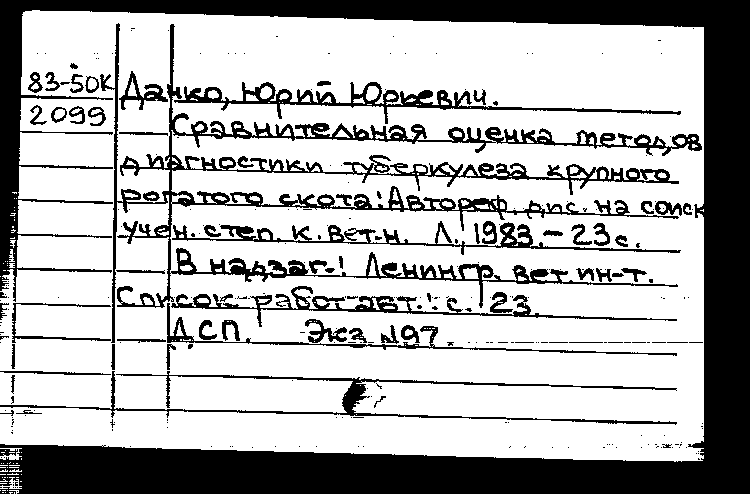 83-50К Данко, Юрий Юрьевич.
2099
Сравнительная оценка методов
диагностики туберкулеза крупного
рогатого скота: Автореф. дис. на соиск
учен. степ. к. вет. н. Л., 1983. – 23 с.
В надзаг.: Ленингр. вет. ин-т.
Список работ авт.: с. 23.
ДСП. Экз №97.